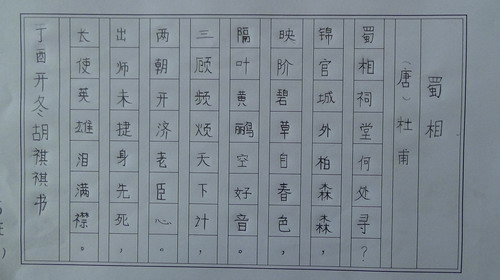 蜀相
（唐）杜甫
蜀相祠堂何处寻？
锦官城外柏森森，
映阶碧草自春色，
隔叶黄鹂空好音。
三顾频烦天下计，
两朝开济老臣心。
出师未捷身先死，
长使英雄泪满襟。
丁酉开冬胡祺祺书